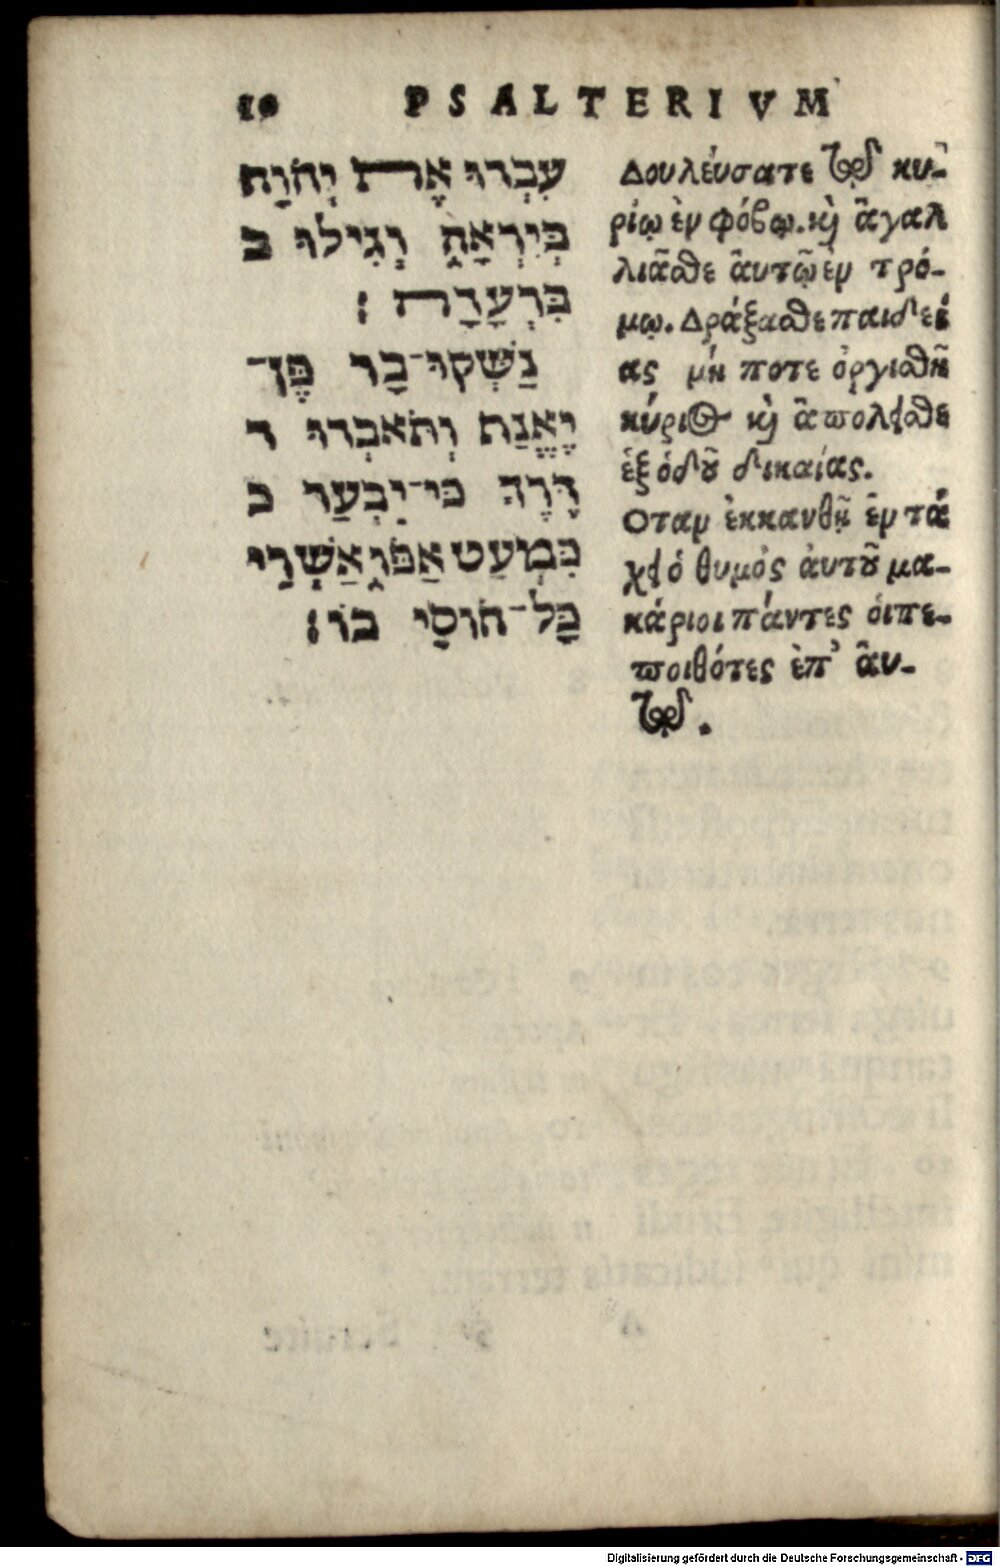 10 PSALTERIVM
עִבְדוּ אֶת יְהוָה
בְּיִרְאָה וְגִילוּ ב
בִּרְעָדָה :
נַשְּׁקוּ־בַר פֶּן־
יֶאֱנַף וְתֹאבְדוּ ד
דֶּרֶךְ כִּי־יִבְעַר כ
כִּמְעַט אַפּוֹ אַשְׁרֵי
כָּל־חוֹסֵי בוֹ :
Δουλέυσατε τῷ κυ-
ρίῳ ἐν φόβῳ. κ̀ ἀγαλ
λιᾶσθε ἀυτῷ ἐν τρό-
μῳ. Δράξασθε παιδεί
ας μή ποτε ὀργισθῆ
κύριος κ̀ ἀπολεῖσθε
ἐξ ὁδοῦ δικαίας.
Οταν ἐκκαυθῇ ἐν τά
χει ὁ θυμὸς ἀυτοῦ μα-
κάριοι πάντες ὁι πε-
ποιθότες ἐπ' ἀυ-
τῷ.
Digitalisierung gefördert durch die Deutsche Forschungsgemeinschaft - DFG